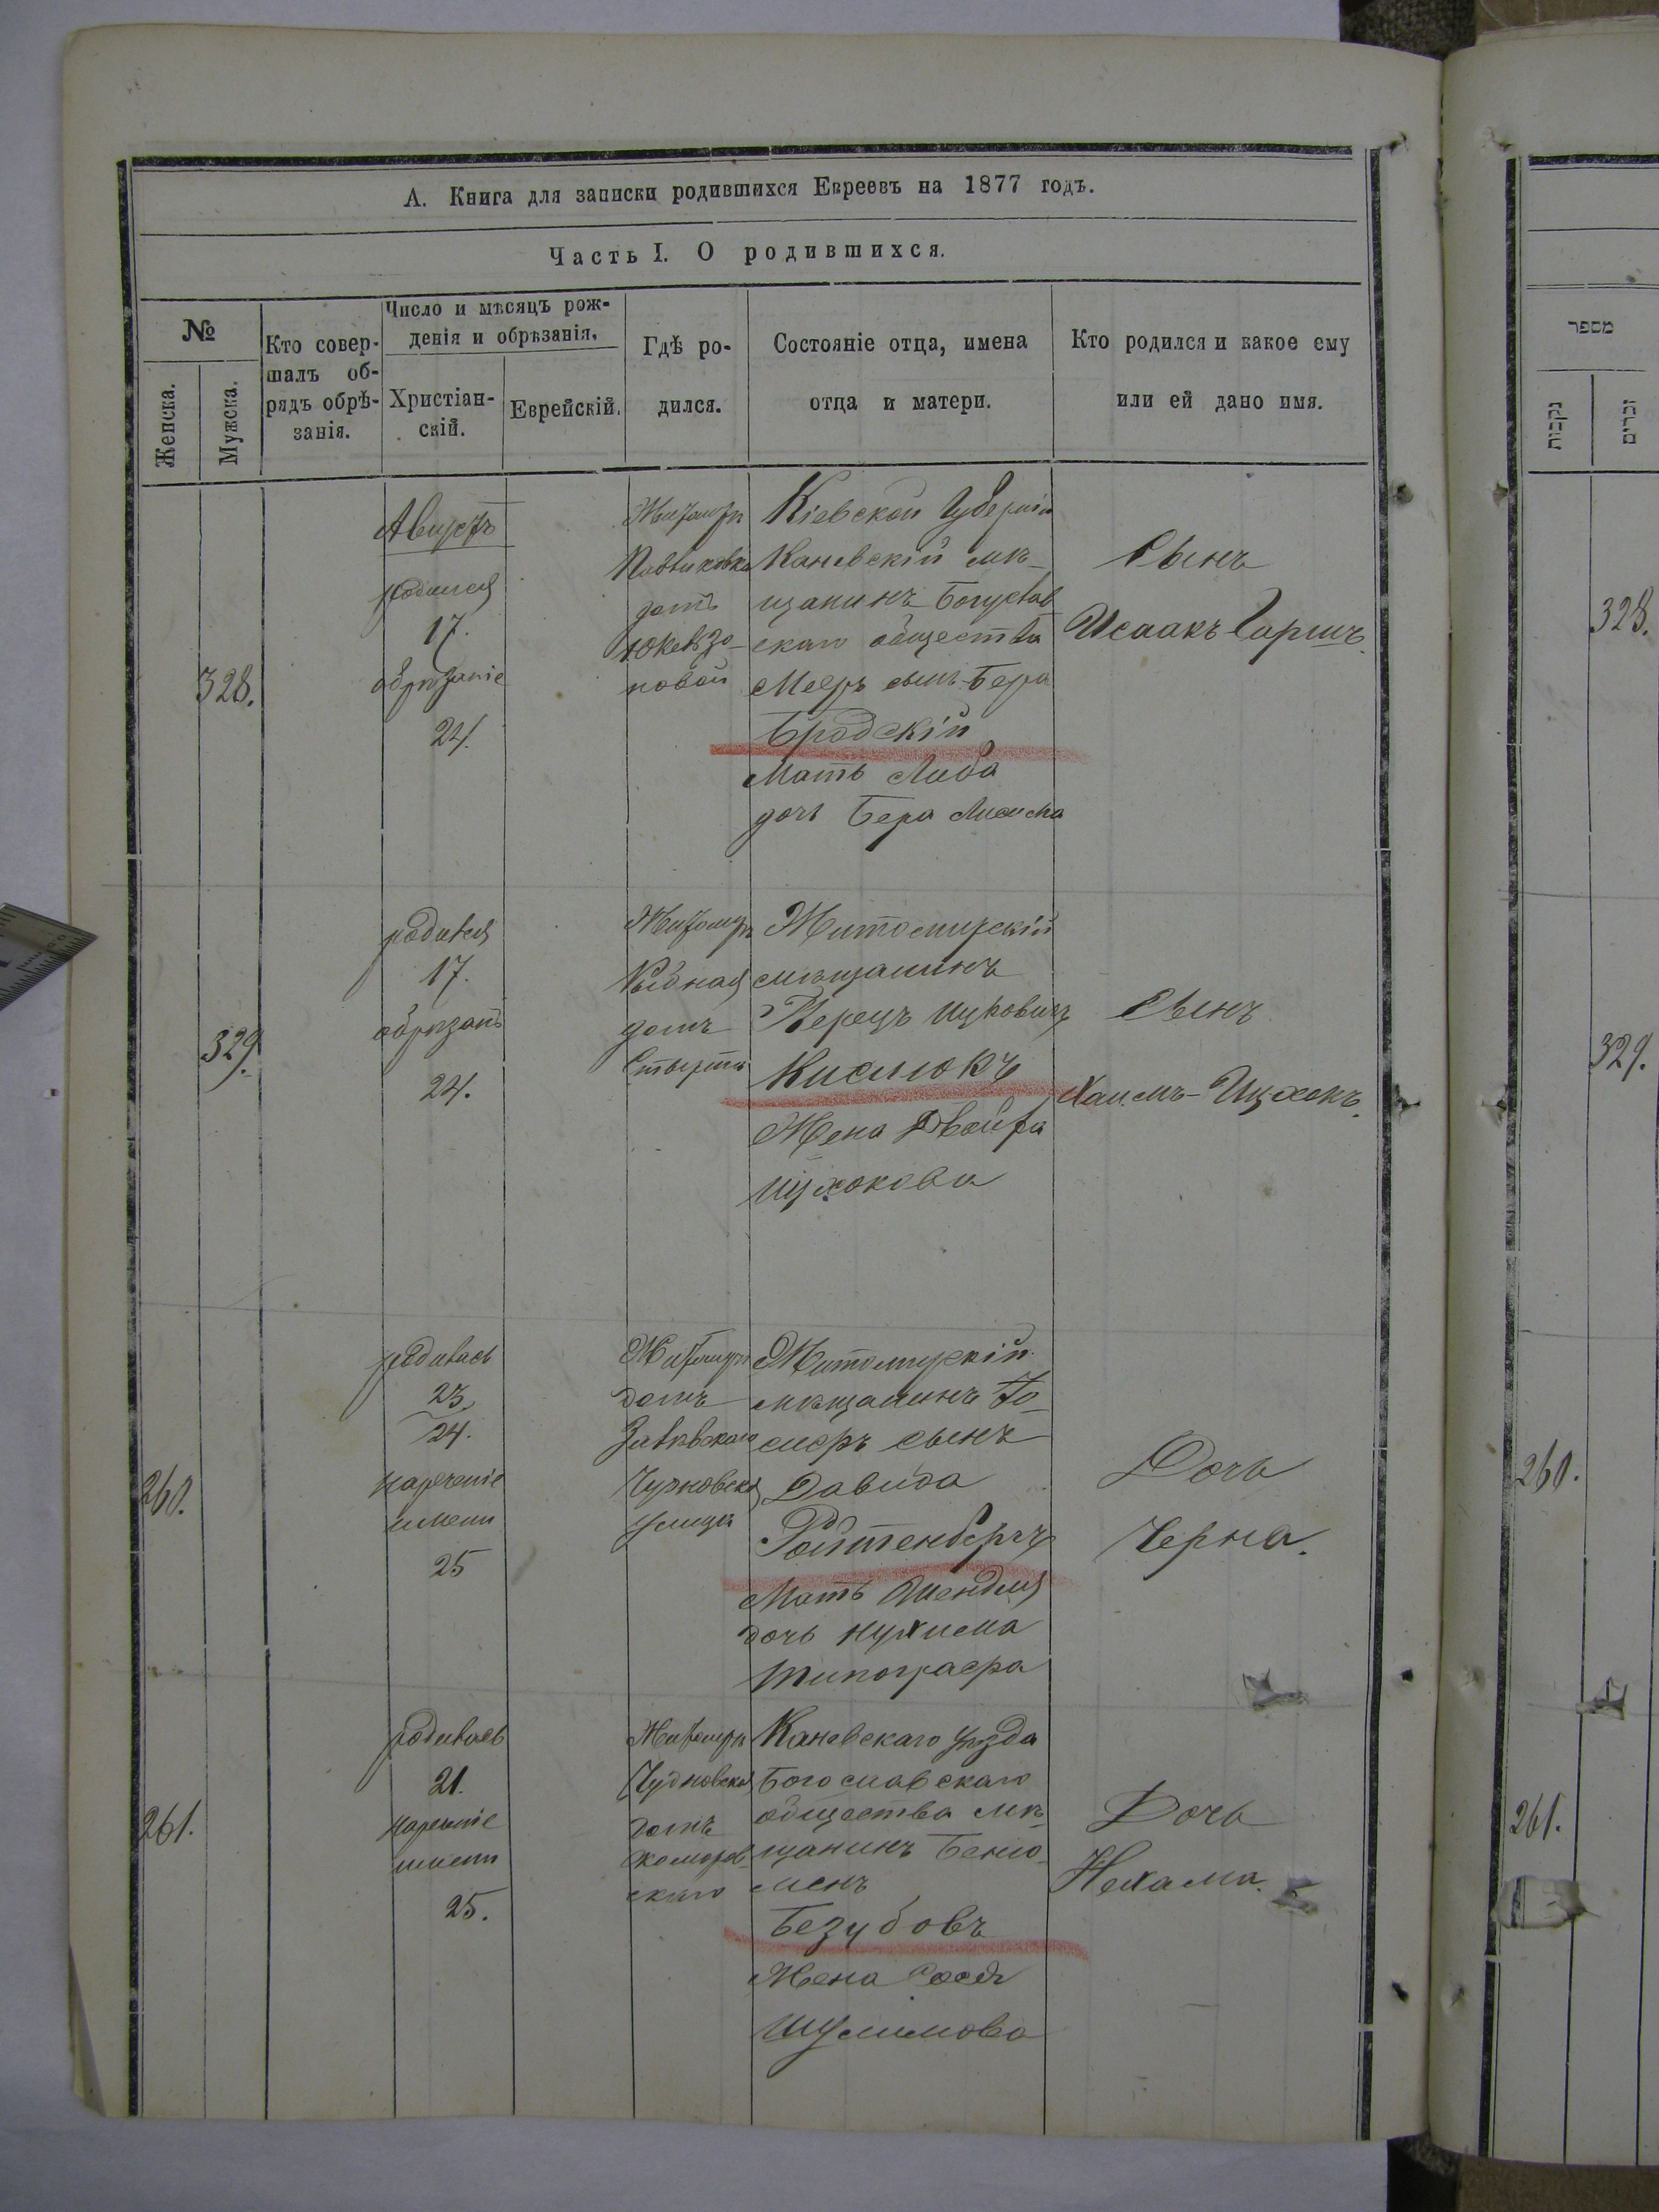 А. Книга для записки родившихся Евреевъ на 1877 годъ.
Часть I. О родившихся.
№
Женска.
Мужска.
Кто совер-
шалъ об-
рядъ обрѣ-
занія.
Число и мѣсяцъ рож-
денія и обрѣзанія.
Христіан-
скій.
Еврейскій.
Гдѣ ро-
дился.
Состояніе отца, имена
отца и матери.
Кто родился и какое ему
или ей дано имя.
328.
Августъ
родился
17.
обрѣзаніе
24.
Житомиръ
домъ
новой
Кіевской Губерніи
Каневскій мѣ-
щанинъ Богуслав
скаго общества
Мееръ сынъ Бера
Бродскій
Мать Либа
дочь Бера
Сынъ
Исаакъ Гершъ.
329.
родился
17.
обрѣзанъ
24.
Житомиръ
Рыбная
домъ
Житомирскій
мѣщанинъ
Перецъ Ицковичъ
Кислюкъ
Жена Двойра
Ицхокова
Сынъ
Хаимъ-Ицхокъ.
260.
родилась
23.
24.
нареченіе
имени
25
Житомиръ
домъ
Чудновска
улица
Житомирскій
мѣщанинъ Го-
меръ сынъ
Давида
Ройтенбергъ
Мать
дочь Нухима
Типографа
Дочь
Черна.
261.
родилась
21.
нареченіе
имени
25.
Житомиръ
Чудновска
домъ
Комаров
скаго
Каневскаго уѣзда
Богославскаго
общества мѣ
щанинъ Беню-
менъ
Безубовъ
Жена Сося
Шулимова
Дочь
Нехама.
מספר
נקבות
זכרים
328.
329.
260.
261.